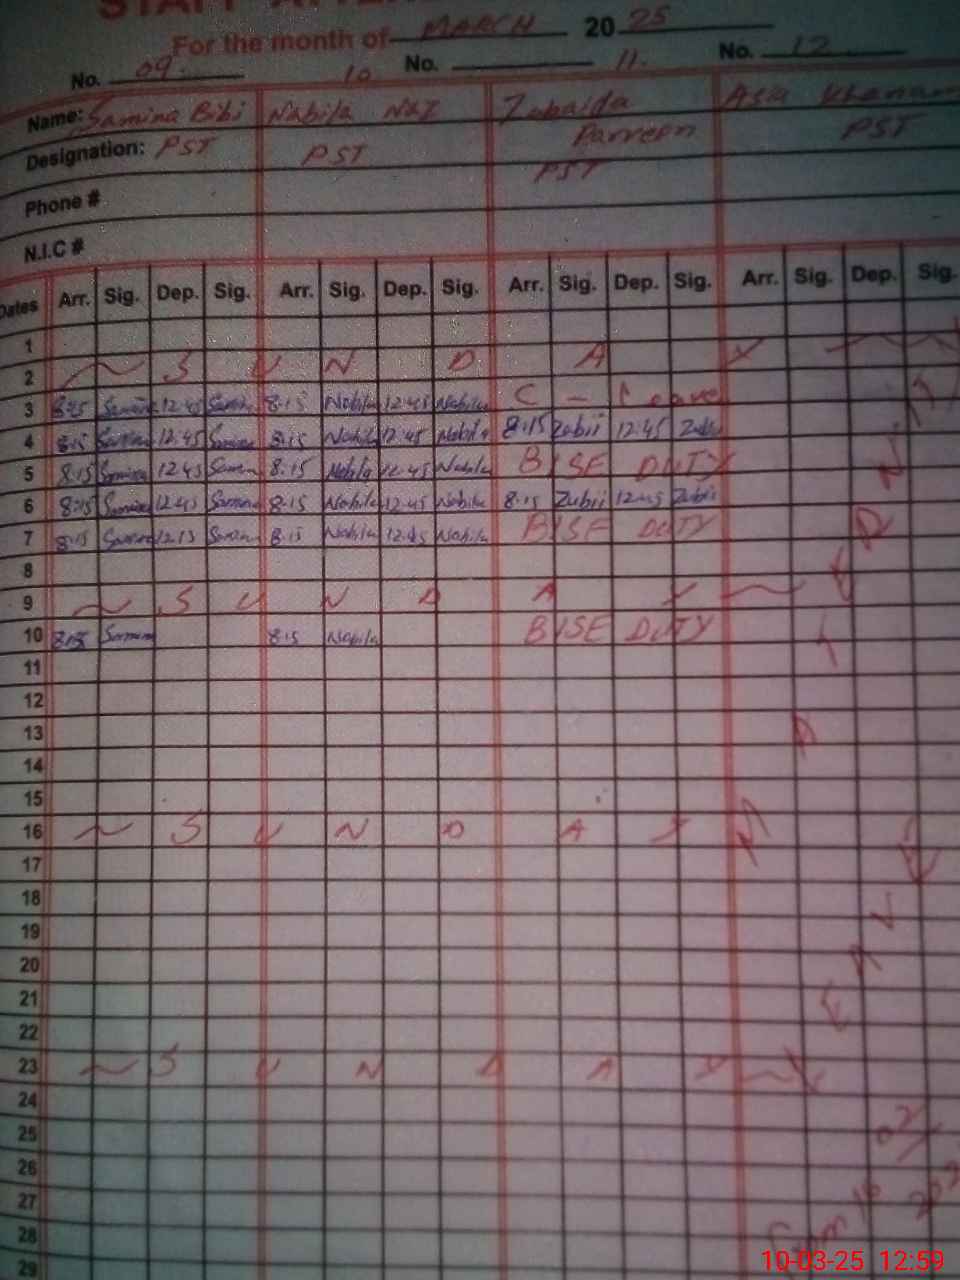 STAFF
For the month of MARCH 2025
No. 09. 10. No. 11. No. 12
Name: Samina Bibi Nabila Naz Zubaida Parveen Asia Khanam
Designation: PST PST PST PST
Phone #
N.I.C #
Dates Arr. Sig. Dep. Sig. Arr. Sig. Dep. Sig. Arr. Sig. Dep. Sig. Arr. Sig. Dep. Sig.
1
2 S U N D A Y
3 8:15 Samina 12:45 Samina 8:15 Nabila 12:45 Nabila C - Leave
4 8:15 Samina 12:45 Samina 8:15 Nabila 12:45 Nabila 8:15 Zubii 12:45 Zubii
5 8:15 Samina 12:45 Samina 8:15 Nabila 12:45 Nabila BISE DUTY
6 8:15 Samina 12:45 Samina 8:15 Nabila 12:45 Nabila 8:15 Zubii 12:45 Zubii
7 8:15 Samina 12:15 Samina 8:15 Nabila 12:45 Nabila BISE DUTY
8
9 S U N D A Y
10 8:15 Samina 8:15 Nabila BISE DUTY
11
12
13
14
15
16 S U N D A Y
17
18
19
20
21
22
23 S U N D A Y
24
25
26
27
28
29
From
10-03-25 12:59